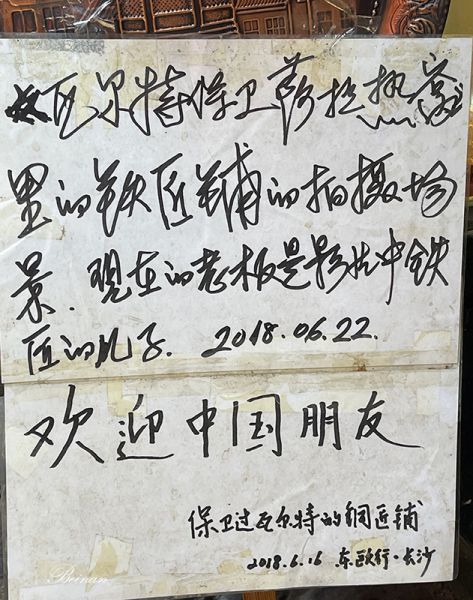 瓦尔特保卫萨拉热窝
里的铁匠铺的拍摄场
景.现在的老板是影片中铁
匠的儿子. 2018.06.22.
欢迎中国朋友
保卫过瓦尔特的铜匠铺
2018.6.16 东欧行·长沙
Beinan